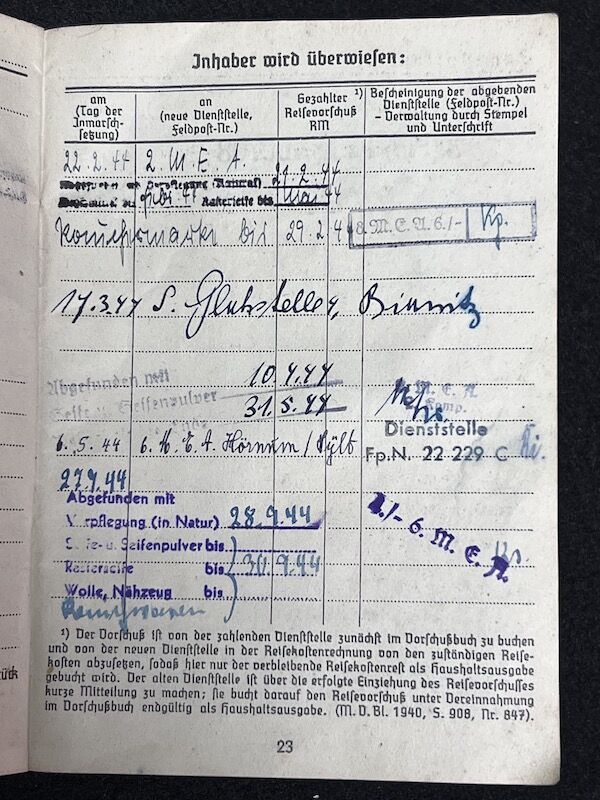 Inhaber wird überwiesen:
am
(Tag der
Inmarsch-
setzung)
an
(neue Dienststelle,
Feldpost-Nr.)
Gezahlter ¹)
Reisevorschuß
RM
Bescheinigung der abgebenden
Dienststelle (Feldpost-Nr.)
- Verwaltung durch Stempel
und Unterschrift
22.2.44 2. M. E. A. 21.2.44
Rasierseife bis
bis 29.2.44 M.E.A. 6./- Kp.
17.3.44 S.
Abgefunden mit 10.4.44
Seifenpulver 31.5.44
M. E. A.
Komp.
Dienststelle
6.5.44 6. M. E. A. Hörnum / Sylt Fp.N. 22 229 C
27.9.44
Abgefunden mit
Verpflegung (in Natur) 28.9.44
1./- 6. M. E. A.
Seife u. Seifenpulver bis
Rasierseife bis 30.9.44
Wolle, Nähzeug bis
Rauchwaren
¹) Der Vorschuß ist von der zahlenden Dienststelle zunächst im Vorschußbuch zu buchen
und von der neuen Dienststelle in der Reisekostenrechnung von den zuständigen Reise-
kosten abzusetzen, sodaß hier nur der verbleibende Reisekostenrest als Haushaltsausgabe
gebucht wird. Der alten Dienststelle ist über die erfolgte Einziehung des Reisevorschusses
kurze Mitteilung zu machen; sie bucht darauf den Reisevorschuß unter Vereinnahmung
im Vorschußbuch endgültig als Haushaltsausgabe. (M. D. Bl. 1940, S. 908, Nr. 847).
23